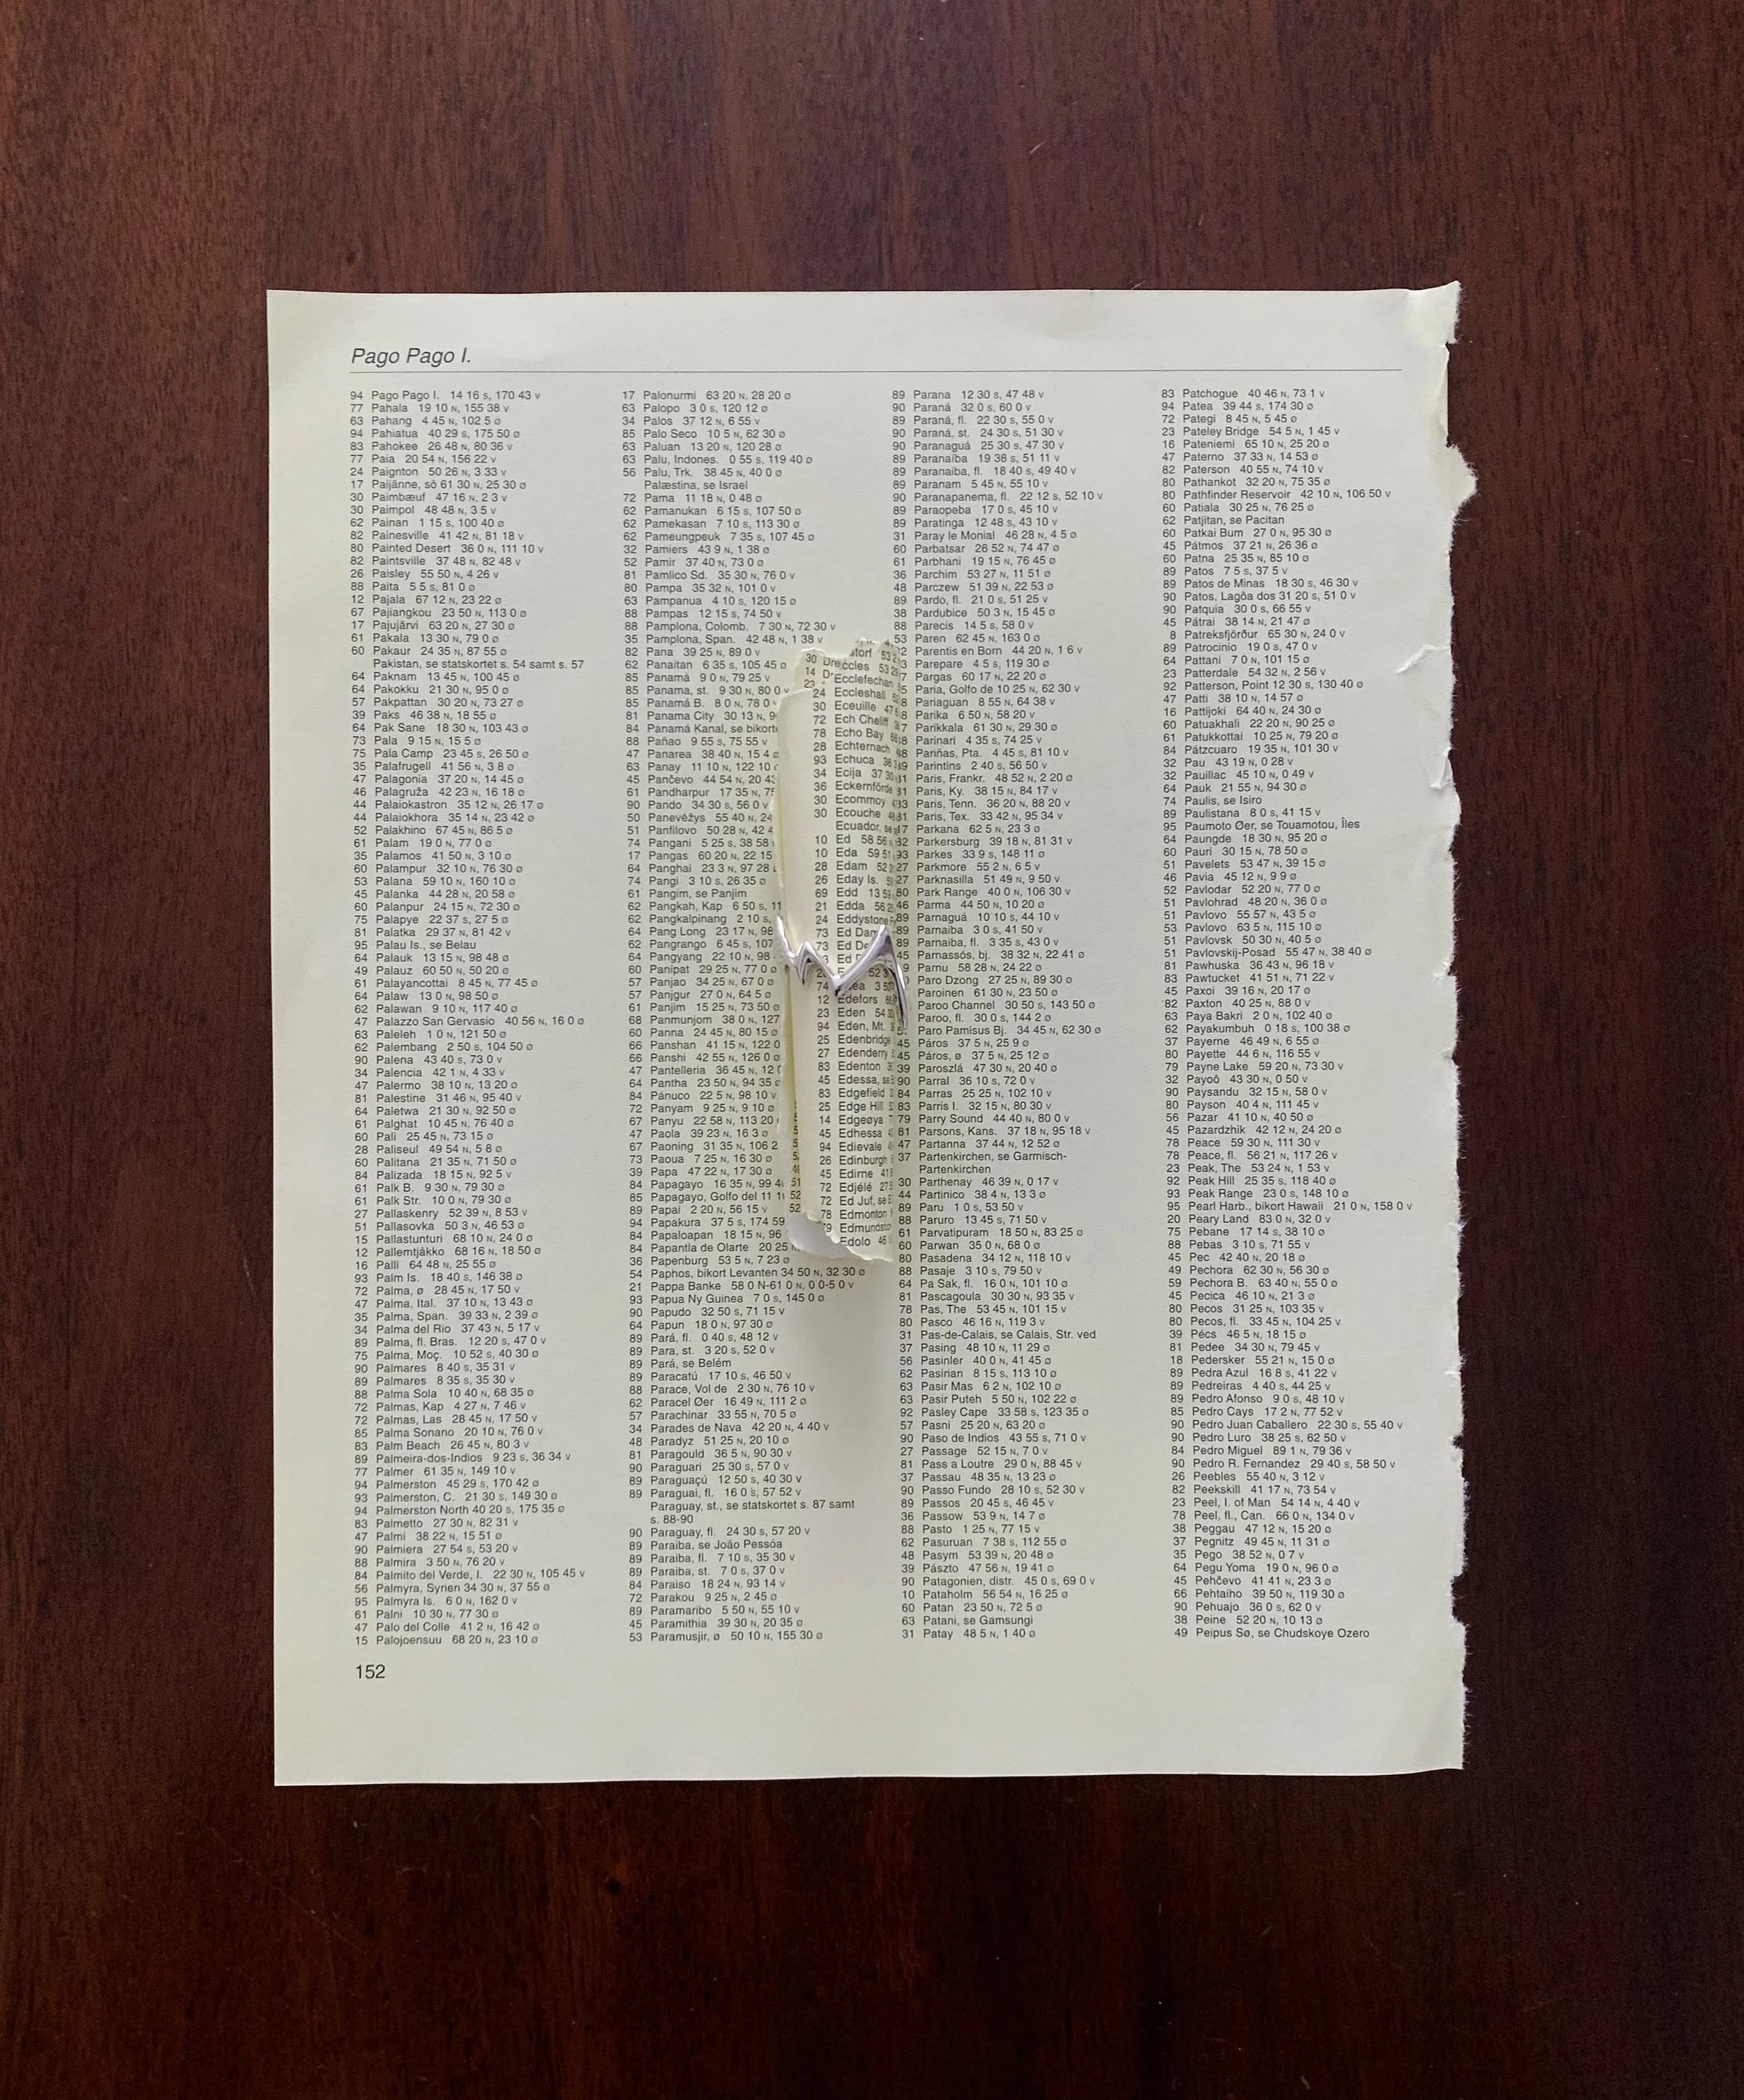 Pago Pago I.
94 Pago Pago I. 14 16 S, 170 43 V
77 Pahala 19 10 N, 155 38 V
63 Pahang 4 45 N, 102 5 Ø
94 Pahiatua 40 29 S, 175 50 Ø
83 Pahokee 26 48 N, 80 36 V
77 Paia 20 54 N, 156 22 V
24 Paignton 50 26 N, 3 33 V
17 Paijänne, sö 61 30 N, 25 30 Ø
30 Paimbæuf 47 16 N, 2 3 V
30 Paimpol 48 48 N, 3 5 V
62 Painan 1 15 S, 100 40 Ø
82 Painesville 41 42 N, 81 18 V
80 Painted Desert 36 0 N, 111 10 V
82 Paintsville 37 48 N, 82 48 V
26 Paisley 55 50 N, 4 26 V
88 Paita 5 5 S, 81 0 Ø
12 Pajala 67 12 N, 23 22 Ø
67 Pajiangkou 23 50 N, 113 0 Ø
17 Pajujärvi 63 20 N, 27 30 Ø
61 Pakala 13 30 N, 79 0 Ø
60 Pakaur 24 35 N, 87 55 Ø
Pakistan, se statskortet s. 54 samt s. 57
64 Paknam 13 45 N, 100 45 Ø
64 Pakokku 21 30 N, 95 0 Ø
57 Pakpattan 30 20 N, 73 27 Ø
39 Paks 46 38 N, 18 55 Ø
64 Pak Sane 18 30 N, 103 43 Ø
73 Pala 9 15 N, 15 5 Ø
75 Pala Camp 23 45 S, 26 50 Ø
35 Palafrugell 41 56 N, 3 8 Ø
47 Palagonia 37 20 N, 14 45 Ø
46 Palagruža 42 23 N, 16 18 Ø
44 Palaiokastron 35 12 N, 26 17 Ø
44 Palaiokhora 35 14 N, 23 42 Ø
52 Palakhino 67 45 N, 86 5 Ø
61 Palam 19 0 N, 77 0 Ø
35 Palamos 41 50 N, 3 10 Ø
60 Palampur 32 10 N, 76 30 Ø
53 Palana 59 10 N, 160 10 Ø
45 Palanka 44 28 N, 20 58 Ø
60 Palanpur 24 15 N, 72 30 Ø
75 Palapye 22 37 S, 27 5 Ø
81 Palatka 29 37 N, 81 42 V
95 Palau Is., se Belau
64 Palauk 13 15 N, 98 48 Ø
49 Palauz 60 50 N, 50 20 Ø
61 Palayancottai 8 45 N, 77 45 Ø
64 Palaw 13 0 N, 98 50 Ø
62 Palawan 9 10 N, 117 40 Ø
47 Palazzo San Gervasio 40 56 N, 16 0 Ø
63 Paleleh 1 0 N, 121 50 Ø
62 Palembang 2 50 S, 104 50 Ø
90 Palena 43 40 S, 73 0 V
34 Palencia 42 1 N, 4 33 V
47 Palermo 38 10 N, 13 20 Ø
81 Palestine 31 46 N, 95 40 V
64 Paletwa 21 30 N, 92 50 Ø
61 Palghat 10 45 N, 76 40 Ø
60 Pali 25 45 N, 73 15 Ø
28 Paliseul 49 54 N, 5 8 Ø
60 Palitana 21 35 N, 71 50 Ø
84 Palizada 18 15 N, 92 5 V
61 Palk B. 9 30 N, 79 30 Ø
61 Palk Str. 10 0 N, 79 30 Ø
27 Pallaskenry 52 39 N, 8 53 V
51 Pallasovka 50 3 N, 46 53 Ø
15 Pallastunturi 68 10 N, 24 0 Ø
12 Pallemtjåkko 68 16 N, 18 50 Ø
16 Palli 64 48 N, 25 55 Ø
93 Palm Is. 18 40 S, 146 38 Ø
72 Palma, Ø 28 45 N, 17 50 V
47 Palma, Ital. 37 10 N, 13 43 Ø
35 Palma, Span. 39 33 N, 2 39 Ø
34 Palma del Rio 37 43 N, 5 17 V
89 Palma, fl. Bras. 12 20 S, 47 0 V
75 Palma, Moç. 10 52 S, 40 30 Ø
90 Palmares 8 40 S, 35 31 V
89 Palmares 8 35 S, 35 30 V
88 Palma Sola 10 40 N, 68 35 Ø
72 Palmas, Kap 4 27 N, 7 46 V
72 Palmas, Las 28 45 N, 17 50 V
85 Palma Sonano 20 10 N, 76 0 V
83 Palm Beach 26 45 N, 80 3 V
89 Palmeira-dos-Indios 9 23 S, 36 34 V
77 Palmer 61 35 N, 149 10 V
94 Palmerston 45 29 S, 170 42 Ø
93 Palmerston, C. 21 30 S, 149 30 Ø
94 Palmerston North 40 20 S, 175 35 Ø
83 Palmetto 27 30 N, 82 31 V
47 Palmi 38 22 N, 15 51 Ø
90 Palmiera 27 54 S, 53 20 V
88 Palmira 3 50 N, 76 20 V
84 Palmito del Verde, I. 22 30 N, 105 45 V
56 Palmyra, Syrien 34 30 N, 37 55 Ø
95 Palmyra Is. 6 0 N, 162 0 V
61 Palni 10 30 N, 77 30 Ø
47 Palo del Colle 41 2 N, 16 42 Ø
15 Palojoensuu 68 20 N, 23 10 Ø
17 Palonurmi 63 20 N, 28 20 Ø
63 Palopo 3 0 S, 120 12 Ø
34 Palos 37 12 N, 6 55 V
85 Palo Seco 10 5 N, 62 30 Ø
63 Paluan 13 20 N, 120 28 Ø
63 Palu, Indones. 0 55 S, 119 40 Ø
56 Palu, Trk. 38 45 N, 40 0 Ø
Palæstina, se Israel
72 Pama 11 18 N, 0 48 Ø
62 Pamanukan 6 15 S, 107 50 Ø
62 Pamekasan 7 10 S, 113 30 Ø
62 Pameungpeuk 7 35 S, 107 45 Ø
32 Pamiers 43 9 N, 1 38 Ø
52 Pamir 37 40 N, 73 0 Ø
81 Pamlico Sd. 35 30 N, 76 0 V
80 Pampa 35 32 N, 101 0 V
63 Pampanua 4 10 S, 120 15 Ø
88 Pampas 12 15 S, 74 50 V
88 Pamplona, Colomb. 7 30 N, 72 30 V
35 Pamplona, Span. 42 48 N, 1 38 V
82 Pana 39 25 N, 89 0 V
62 Panaitan 6 35 S, 105 45 Ø
85 Panamá 9 0 N, 79 25 V
85 Panama, st. 9 30 N, 80 0 V
85 Panamá B. 8 0 N, 78 0
81 Panama City 30 13 N,
84 Panamá Kanal, se bikort
88 Pañao 9 55 S, 75 55 V
47 Panarea 38 40 N, 15 4 Ø
63 Panay 11 10 N, 122 10
45 Pančevo 44 54 N, 20
61 Pandharpur 17 35 N,
90 Pando 34 30 S, 56 0 V
50 Panevėžys 55 40 N, 24
51 Panfilovo 50 28 N, 42
74 Pangani 5 25 S, 38 58
17 Pangas 60 20 N, 22 15
64 Panghai 23 3 N, 97 28
74 Pangi 3 10 S, 26 35 Ø
61 Pangim, se Panjim
62 Pangkah, Kap 6 50 S, 11
62 Pangkalpinang 2 10 S,
64 Pang Long 23 17 N, 98
62 Pangrango 6 45 S, 107
64 Pangyang 22 10 N, 98
60 Panipat 29 25 N, 77 0 Ø
57 Panjao 34 25 N, 67 0 Ø
57 Panjgur 27 0 N, 64 5 Ø
61 Panjim 15 25 N, 73 50 Ø
68 Panmunjom 38 0 N, 127
60 Panna 24 45 N, 80 15 Ø
66 Panshan 41 15 N, 122 0
66 Panshi 42 55 N, 126 0 Ø
47 Pantelleria 36 45 N, 12
64 Pantha 23 50 N, 94 35 Ø
84 Pánuco 22 5 N, 98 10 V
72 Panyam 9 25 N, 9 10 Ø
67 Panyu 22 58 N, 113 20
47 Paola 39 23 N, 16 3 Ø
67 Paoning 31 35 N, 106 2
73 Paoua 7 25 N, 16 30 Ø
39 Papa 47 22 N, 17 30 Ø
84 Papagayo 16 35 N, 99
85 Papagayo, Golfo del 11
89 Papai 2 20 N, 56 15 V
94 Papakura 37 5 S, 174 59
84 Papaloapan 18 15 N, 96
84 Papantla de Olarte 20 25
36 Papenburg 53 5 N, 7 23 Ø
54 Paphos, bikort Levanten 34 50 N, 32 30 Ø
21 Pappa Banke 58 0 N-61 0 N, 0 0-5 0 V
93 Papua Ny Guinea 7 0 S, 145 0 Ø
90 Papudo 32 50 S, 71 15 V
64 Papun 18 0 N, 97 30 Ø
89 Pará, fl. 0 40 S, 48 12 V
89 Para, st. 3 20 S, 52 0 V
89 Pará, se Belém
89 Paracatú 17 10 S, 46 50 V
88 Parace, Vol de 2 30 N, 76 10 V
62 Paracel Øer 16 49 N, 111 2 Ø
57 Parachinar 33 55 N, 70 5 Ø
34 Parades de Nava 42 20 N, 4 40 V
48 Paradyz 51 25 N, 20 10 Ø
81 Paragould 36 5 N, 90 30 V
90 Paraguari 25 30 S, 57 0 V
89 Paraguaçú 12 50 S, 40 30 V
89 Paraguai, fl. 16 0 S, 57 52 V
Paraguay, st., se statskortet s. 87 samt
s. 88-90
90 Paraguay, fl. 24 30 S, 57 20 V
89 Paraiba, se João Pessóa
89 Paraiba, fl. 7 10 S, 35 30 V
89 Paraiba, st. 7 0 S, 37 0 V
84 Paraiso 18 24 N, 93 14 V
72 Parakou 9 25 N, 2 45 Ø
89 Paramaribo 5 50 N, 55 10 V
45 Paramithia 39 30 N, 20 35 Ø
53 Paramusjir, Ø 50 10 N, 155 30 Ø
24 Eccleshall
30 Eceuille 47
72 Ech Cheliff
78 Echo Bay
28 Echternach
93 Echuca 36
34 Ecija 37
36 Eckernförde
30 Ecommoy
30 Ecouche
Ecuador, se
10 Ed 58 56
10 Eda 59 51
28 Edam 52
26 Eday Is.
69 Edd 13
21 Edda 56
24 Eddystone
73 Ed Dam
73 Ed De
12 Edefors
23 Eden 54
94 Eden, Mt.
25 Edenbridge
27 Edenderry
83 Edenton
45 Edessa, se
83 Edgefield
25 Edge Hill
14 Edgeøya
45 Edhessa
94 Edievale
26 Edinburgh
45 Edirne 41
72 Edjélé 27
72 Ed Juf, se
78 Edmonton
79 Edmundston
Edolo 46
89 Parana 12 30 S, 47 48 V
90 Paraná 32 0 S, 60 0 V
89 Paraná, fl. 22 30 S, 55 0 V
90 Paraná, st. 24 30 S, 51 30 V
90 Paranaguá 25 30 S, 47 30 V
89 Paranaíba 19 38 S, 51 11 V
89 Paranaiba, fl. 18 40 S, 49 40 V
89 Paranam 5 45 N, 55 10 V
90 Paranapanema, fl. 22 12 S, 52 10 V
89 Paraopeba 17 0 S, 45 10 V
89 Paratinga 12 48 S, 43 10 V
31 Paray le Monial 46 28 N, 4 5 Ø
60 Parbatsar 26 52 N, 74 47 Ø
61 Parbhani 19 15 N, 76 45 Ø
36 Parchim 53 27 N, 11 51 Ø
48 Parczew 51 39 N, 22 53 Ø
89 Pardo, fl. 21 0 S, 51 25 V
38 Pardubice 50 3 N, 15 45 Ø
88 Parecis 14 5 S, 58 0 V
53 Paren 62 45 N, 163 0 Ø
Parentis en Born 44 20 N, 1 6 V
Parepare 4 5 S, 119 30 Ø
Pargas 60 17 N, 22 20 Ø
Paria, Golfo de 10 25 N, 62 30 V
Pariaguan 8 55 N, 64 38 V
Parika 6 50 N, 58 20 V
Parikkala 61 30 N, 29 30 Ø
Parinari 4 35 S, 74 25 V
Pariñas, Pta. 4 45 S, 81 10 V
Parintins 2 40 S, 56 50 V
Paris, Frankr. 48 52 N, 2 20 Ø
Paris, Ky. 38 15 N, 84 17 V
Paris, Tenn. 36 20 N, 88 20 V
Paris, Tex. 33 42 N, 95 34 V
17 Parkana 62 5 N, 23 3 Ø
82 Parkersburg 39 18 N, 81 31 V
93 Parkes 33 9 S, 148 11 Ø
27 Parkmore 55 2 N, 6 5 V
27 Parknasilla 51 49 N, 9 50 V
80 Park Range 40 0 N, 106 30 V
46 Parma 44 50 N, 10 20 Ø
89 Parnaguá 10 10 S, 44 10 V
89 Parnaiba 3 0 S, 41 50 V
89 Parnaiba, fl. 3 35 S, 43 0 V
45 Parnassós, bj. 38 32 N, 22 41 Ø
Parnu 58 28 N, 24 22 Ø
Paro Dzong 27 25 N, 89 30 Ø
Paroinen 61 30 N, 23 50 Ø
Paroo Channel 30 50 S, 143 50 Ø
Paroo, fl. 30 0 S, 144 2 Ø
Paro Pamisus Bj. 34 45 N, 62 30 Ø
45 Páros 37 5 N, 25 9 Ø
45 Páros, Ø 37 5 N, 25 12 Ø
39 Paroszlá 47 30 N, 20 40 Ø
90 Parral 36 10 S, 72 0 V
84 Parras 25 25 N, 102 10 V
83 Parris I. 32 15 N, 80 30 V
79 Parry Sound 44 40 N, 80 0 V
81 Parsons, Kans. 37 18 N, 95 18 V
47 Partanna 37 44 N, 12 52 Ø
37 Partenkirchen, se Garmisch-
Partenkirchen
30 Parthenay 46 39 N, 0 17 V
44 Partinico 38 4 N, 13 3 Ø
89 Paru 1 0 S, 53 50 V
88 Paruro 13 45 S, 71 50 V
61 Parvatipuram 18 50 N, 83 25 Ø
60 Parwan 35 0 N, 68 0 Ø
80 Pasadena 34 12 N, 118 10 V
88 Pasaje 3 10 S, 79 50 V
64 Pa Sak, fl. 16 0 N, 101 10 Ø
81 Pascagoula 30 30 N, 93 35 V
78 Pas, The 53 45 N, 101 15 V
80 Pasco 46 16 N, 119 3 V
31 Pas-de-Calais, se Calais, Str. ved
37 Pasing 48 10 N, 11 29 Ø
56 Pasinler 40 0 N, 41 45 Ø
62 Pasirian 8 15 S, 113 10 Ø
63 Pasir Mas 6 2 N, 102 10 Ø
63 Pasir Puteh 5 50 N, 102 22 Ø
92 Pasley Cape 33 58 S, 123 35 Ø
57 Pasni 25 20 N, 63 20 Ø
90 Paso de Indios 43 55 S, 71 0 V
27 Passage 52 15 N, 7 0 V
81 Pass a Loutre 29 0 N, 88 45 V
37 Passau 48 35 N, 13 23 Ø
90 Passo Fundo 28 10 S, 52 30 V
89 Passos 20 45 S, 46 45 V
36 Passow 53 9 N, 14 7 Ø
88 Pasto 1 25 N, 77 15 V
62 Pasuruan 7 38 S, 112 55 Ø
48 Pasym 53 39 N, 20 48 Ø
39 Pászto 47 56 N, 19 41 Ø
90 Patagonien, distr. 45 0 S, 69 0 V
10 Pataholm 56 54 N, 16 25 Ø
60 Patan 23 50 N, 72 5 Ø
63 Patani, se Gamsungi
31 Patay 48 5 N, 1 40 Ø
83 Patchogue 40 46 N, 73 1 V
94 Patea 39 44 S, 174 30 Ø
72 Pategi 8 45 N, 5 45 Ø
23 Pateley Bridge 54 5 N, 1 45 V
16 Pateniemi 65 10 N, 25 20 Ø
47 Paterno 37 33 N, 14 53 Ø
82 Paterson 40 55 N, 74 10 V
80 Pathankot 32 20 N, 75 35 Ø
80 Pathfinder Reservoir 42 10 N, 106 50 V
60 Patiala 30 25 N, 76 25 Ø
62 Patjitan, se Pacitan
60 Patkai Bum 27 0 N, 95 30 Ø
45 Pátmos 37 21 N, 26 36 Ø
60 Patna 25 35 N, 85 10 Ø
89 Patos 7 5 S, 37 5 V
89 Patos de Minas 18 30 S, 46 30 V
90 Patos, Lagôa dos 31 20 S, 51 0 V
90 Patquia 30 0 S, 66 55 V
45 Pátrai 38 14 N, 21 47 Ø
8 Patreksfjörður 65 30 N, 24 0 V
89 Patrocinio 19 0 S, 47 0 V
64 Pattani 7 0 N, 101 15 Ø
23 Patterdale 54 32 N, 2 56 V
92 Patterson, Point 12 30 S, 130 40 Ø
47 Patti 38 10 N, 14 57 Ø
16 Pattijoki 64 40 N, 24 30 Ø
60 Patuakhali 22 20 N, 90 25 Ø
61 Patukkottai 10 25 N, 79 20 Ø
84 Pátzcuaro 19 35 N, 101 30 V
32 Pau 43 19 N, 0 28 V
32 Pauillac 45 10 N, 0 49 V
64 Pauk 21 55 N, 94 30 Ø
74 Paulis, se Isiro
89 Paulistana 8 0 S, 41 15 V
95 Paumoto Øer, se Touamotou, Îles
64 Paungde 18 30 N, 95 20 Ø
60 Pauri 30 15 N, 78 50 Ø
51 Pavelets 53 47 N, 39 15 Ø
46 Pavia 45 12 N, 9 9 Ø
52 Pavlodar 52 20 N, 77 0 Ø
51 Pavlohrad 48 20 N, 36 0 Ø
51 Pavlovo 55 57 N, 43 5 Ø
53 Pavlovo 63 5 N, 115 10 Ø
51 Pavlovsk 50 30 N, 40 5 Ø
51 Pavlovskij-Posad 55 47 N, 38 40 Ø
81 Pawhuska 36 43 N, 96 18 V
83 Pawtucket 41 51 N, 71 22 V
45 Paxoi 39 16 N, 20 17 Ø
82 Paxton 40 25 N, 88 0 V
63 Paya Bakri 2 0 N, 102 40 Ø
62 Payakumbuh 0 18 S, 100 38 Ø
37 Payerne 46 49 N, 6 55 Ø
80 Payette 44 6 N, 116 55 V
79 Payne Lake 59 20 N, 73 30 V
32 Payoô 43 30 N, 0 50 V
90 Paysandu 32 15 S, 58 0 V
80 Payson 40 4 N, 111 45 V
56 Pazar 41 10 N, 40 50 Ø
45 Pazardzhik 42 12 N, 24 20 Ø
78 Peace 59 30 N, 111 30 V
78 Peace, fl. 56 21 N, 117 26 V
23 Peak, The 53 24 N, 1 53 V
92 Peak Hill 25 35 S, 118 40 Ø
93 Peak Range 23 0 S, 148 10 Ø
95 Pearl Harb., bikort Hawaii 21 0 N, 158 0 V
20 Peary Land 83 0 N, 32 0 V
75 Pebane 17 14 S, 38 10 Ø
88 Pebas 3 10 S, 71 55 V
45 Pec 42 40 N, 20 18 Ø
49 Pechora 62 30 N, 56 30 Ø
59 Pechora B. 63 40 N, 55 0 Ø
45 Pecica 46 10 N, 21 3 Ø
80 Pecos 31 25 N, 103 35 V
80 Pecos, fl. 33 45 N, 104 25 V
39 Pécs 46 5 N, 18 15 Ø
81 Pedee 34 30 N, 79 45 V
18 Pedersker 55 21 N, 15 0 Ø
89 Pedra Azul 16 8 S, 41 22 V
89 Pedreiras 4 40 S, 44 25 V
89 Pedro Afonso 9 0 S, 48 10 V
85 Pedro Cays 17 2 N, 77 52 V
90 Pedro Juan Caballero 22 30 S, 55 40 V
90 Pedro Luro 38 25 S, 62 50 V
84 Pedro Miguel 89 1 N, 79 36 V
90 Pedro R. Fernandez 29 40 S, 58 50 V
26 Peebles 55 40 N, 3 12 V
82 Peekskill 41 17 N, 73 54 V
23 Peel, I. of Man 54 14 N, 4 40 V
78 Peel, fl., Can. 66 0 N, 134 0 V
38 Peggau 47 12 N, 15 20 Ø
37 Pegnitz 49 45 N, 11 31 Ø
35 Pego 38 52 N, 0 7 V
64 Pegu Yoma 19 0 N, 96 0 Ø
45 Pehčevo 41 41 N, 23 3 Ø
66 Pehtaiho 39 50 N, 119 30 Ø
90 Pehuajo 36 0 S, 62 0 V
38 Peine 52 20 N, 10 13 Ø
49 Peipus Sø, se Chudskoye Ozero
152